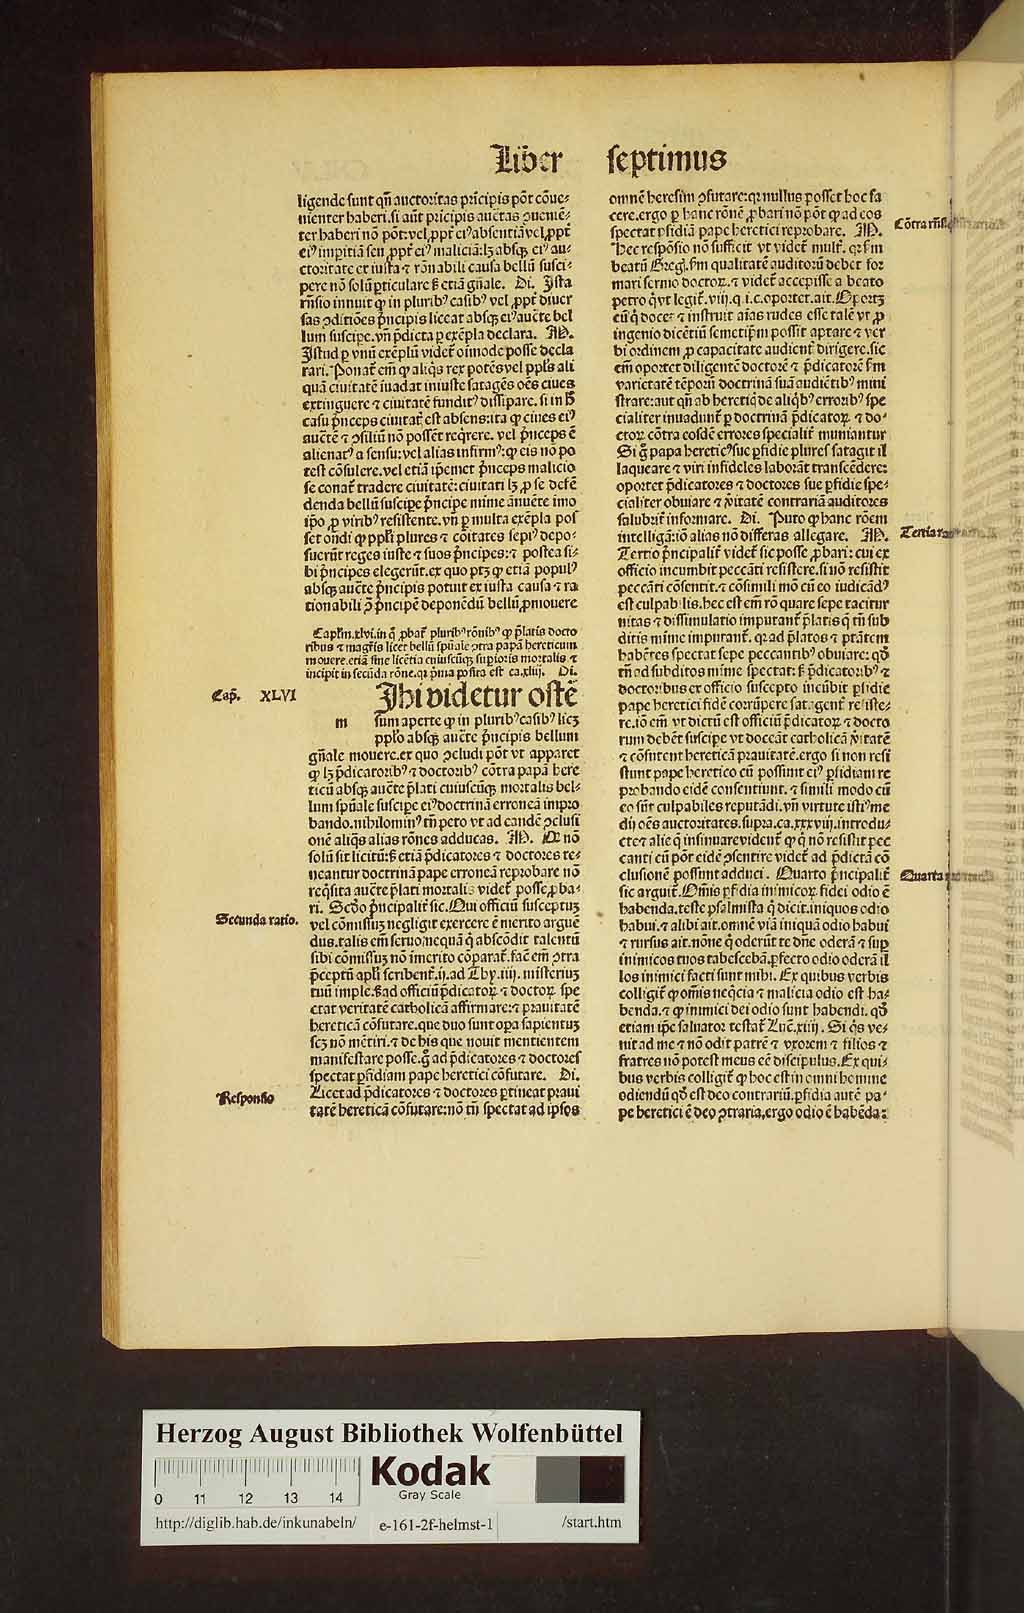 Liber septimus
ligende sunt qn̄ auctoritas prīcipis pōt cōue-
nienter haberi. si aūt prīcipis auctas ꝯueniē-
ter haberi nō pōt: vel ꝓpt̄ eiꝰ absentiā vel ꝓpt̄
eiꝰ impitiā seu ꝓpt̄ eiꝰ maliciā: lꝫ absqꝫ eiꝰ au-
ctoritate et iusta ⁊ rōnabili causa bellū susci-
pere nō solū ꝑticulare sꝫ etiā gn̄ale. Di. Ista
rn̄sio innuit ꝙ in pluribꝰ casibꝰ vel ꝓpt̄ diuer
sas ꝯditiões prīcipis liceat absqꝫ eiꝰ aucte bel
lum suscipe. vn̄ p̄dicta ꝑ exēpla declara. M.
Istud ꝑ vnū exēplū videt̄ oīmode posse decla
rari. Ponat̄ em̄ ꝙ aliqͥs rex potēs vel ppl̄s ali
quā ciuitatē inuadat iniuste satagēs oēs ciues
extinguere ⁊ ciuitatē funditꝰ dissipare. si in hͦ
casu prīceps ciuitat̄ est absens: ita ꝙ ciues eiꝰ
auctē ⁊ ꝯsiliū nō possēt reqͥrere. vel prīceps ē
alienatꝰ a sensu: vel alias infirmꝰ: ꝙ eis nō po
test cōsulere. vel etiā ip̄emet prīceps malicio
se conat̄ tradere ciuitatē: ciuitati lꝫ ꝓ se defē
denda bellū suscipe prīncipe mīme ānuēte imo
ip̄o ꝓ viribꝰ resistente. vn̄ ꝑ multa exēpla pos
set on̄di ꝙ ppl̄i plures ⁊ cōitates sepiꝰ depo-
suerūt reges iuste ⁊ suos prīcipes: ⁊ postea si-
bi prīcipes elegerūt. ex quo ptꝫ ꝙ etiā populꝰ
absqꝫ auctē prīcipis potuit ex iusta causa ⁊ ra
tionabili ꝯ prīcipē deponēdū bellū ꝓmouere
Capl̄m. xlvi. in q̄ ꝓbat̄ pluribꝰ rōnibꝰ ꝙ p̄latis docto
ribus ⁊ magr̄is licet bellū spūale ꝯtra papā hereticum
mouere. etiā sine licētia cuiuscūqꝫ supioris mortalis ⁊
incipit in secūda rōne. qꝛ pͥma posita est ca. xliij. Di.
Cap̄. XLVI
m Ihi videtur oste
sum aperte ꝙ in pluribꝰ casibꝰ licꝫ
ppl̄o absqꝫ auctē prīcipis bellum
gn̄ale mouere. ex quo ꝯcludi pōt vt apparet
ꝙ lꝫ p̄dicatoribꝰ ⁊ doctoribꝰ cōtra papā here
ticū absqꝫ auctē p̄lati cuiuscūqꝫ mortalis bel-
lum spūale suscipe eiꝰ doctrinā erroneā impro
bando. nihilominꝰ tn̄ peto vt ad eandē ꝯclusi
onē aliqͣs alias rōnes adducas. M. Qꝫ nō
solū sit licitū: sꝫ etiā p̄dicatores ⁊ doctores te-
neantur doctrinā pape erroneā reprobare nō
reqͥsita auctē p̄lati mortalis videt̄ posse ꝓba-
ri. Scd̄o prīcipalit̄ sic. Qui officiū susceptuꝫ
vel cōmissuꝫ negligit exercere ē merito argue
dus. talis em̄ seruo nequā qͥ abscōdit talentū
sibi cōmissuꝫ nō īmerito cōparat̄. fac̄ em̄ ꝯtra
p̄ceptū apl̄i scribent̄. ij. ad Thy. iiij. misteriuꝫ
tuū imple. sꝫ ad officiū p̄dicatoꝝ ⁊ doctoꝝ spe
ctat veritatē catholicā affirmare: ⁊ prauitatē
hereticā cōfutare. que duo sunt oꝑa sapientuꝫ
scꝫ nō mētiri. ⁊ de his que nouit mentientem
manifestare posse. gͦ ad p̄dicatores ⁊ doctores
spectat ꝑfidiam pape heretici cōfutare. Di.
Licet ad p̄dicatores ⁊ doctores ꝑtineat praui
tatē hereticā cōfutare: nō tn̄ spectat ad ipsos
Secunda ratio.
Responsio
omnē heresim ꝯfutare: qꝛ nullus posset hoc fa
cere. ergo ꝑ hanc rōnē ꝓbari nō pōt ꝙ ad eos
spectat ꝑfidiā pape heretici reprobare. M.
Hec respōsio nō sufficit vt videt̄ mult̄. qꝛ fm̄
beatū Greg. fm̄ qualitatē auditorū debet for
mari sermo doctoꝝ. ⁊ videt̄ accepisse a beato
petro qͥ vt legit̄. viij. q. i. c. oportet. ait. Oportꝫ
eū qͥ docet ⁊ instruit aīas rudes esse talē vt ꝓ
ingenio dicētiū semetip̄m possit aptare ⁊ ver
bi ordinem ꝓ capacitate audient̄ dirigere. sic
em̄ oportet diligentē doctorē ⁊ p̄dicatorē fm̄
varietatē tēporū doctrinā suā audiētibꝰ mini
strare: aut qn̄ ab hereticͥ de aliqͥbꝰ erroribꝰ spe
cialiter inuadunt̄ ꝑ doctrinā p̄dicatoꝝ ⁊ do-
ctoꝝ cōtra eosdē errores specialit̄ muniantur
Si gͦ papa hereticꝰ sue ꝑfidie plures satagit il
laqueare ⁊ viri infideles laborāt transcēdere:
oportet p̄dicatores ⁊ doctores sue ꝑfidie spe-
cialiter obuiare ⁊ v̄itatē contrariā auditores
salubrit̄ informare. Di. Puto ꝙ hanc rōem
intelligā: iō alias nō differas allegare. M.
Tertio prīcipalit̄ videt̄ sic posse ꝓbari: cui ex
officio incumbit peccāti resistere. si nō resistit
peccāti cōsentit. ⁊ cōsimili mō cū eo iudicādꝰ
est culpabilis. hec est em̄ rō quare sepe tacitur
nitas ⁊ dissimulatio imputant̄ p̄latis qͥ tn̄ sub
ditis mīme imputant̄. qꝛ ad p̄latos ⁊ ptātem
habētes spectat sepe peccantibꝰ obuiare: qd̄
tn̄ ad subditos mīme spectat: sꝫ p̄dicatoribꝰ ⁊
doctoribus ex officio suscepto incūbit ꝑfidie
pape heretici fidē corrūpere satagent̄ resiste-
re. iō em̄ vt dictū est officiū p̄dicatoꝝ ⁊ docto
rum debēt suscipe vt doceāt catholicā v̄itatē
⁊ cōfutent hereticā prauitatē. ergo si non resi
stunt pape heretico cū possunt eiꝰ ꝑfidiam re
probando eidē consentiunt. ⁊ simili modo cū
eo sūt culpabiles reputādi. vn̄ virtute istiꝰ me
dij oēs auctoritates. supra. ca. xxxvij. introdu-
cte ⁊ alie qͥ insinuare vident̄ ꝙ qͥ nō resistit pec
canti cū pōt eidē ꝯsentire videt̄ ad p̄dictā cō
clusionē possunt adduci. Quarto prīcipalit̄
sic arguit̄. Om̄is ꝑfidia inimicoꝝ fidei odio ē
habenda. teste psalmista qͥ dicit. iniquos odio
habui. ⁊ alibi ait. omnē viā iniquā odio habui
⁊ rursus ait. nōne qͥ oderūt te dn̄e oderā ⁊ suꝑ
inimicos tuos tabescebā. ꝑfecto odio oderā il
los inimici facti sunt mihi. Ex quibus verbis
colligit̄ ꝙ om̄is neqͥcia ⁊ malicia odio est ha-
benda. ⁊ ꝙ inimici dei odio sunt habendi. qd̄
etiam ip̄e saluator testat̄ Luc̄. xiiij. Si qͥs ve-
nit ad me ⁊ nō odit patrē ⁊ vxorem ⁊ filios ⁊
fratres nō potest meus eē discipulus. Ex qui-
bus verbis colligit̄ ꝙ hoc est in omni homine
odiendū qd̄ est deo contrariū. ꝑfidia autē pa-
pe heretici ē deo ꝯtraria, ergo odio ē habēda:
Cōtra rn̄si
Tertia ra
Quarta
Herzog August Bibliothek Wolfenbüttel
Kodak
Gray Scale
0 11 12 13 14
http://diglib.hab.de/inkunabeln/ e-161-2f-helmst-1 /start.htm